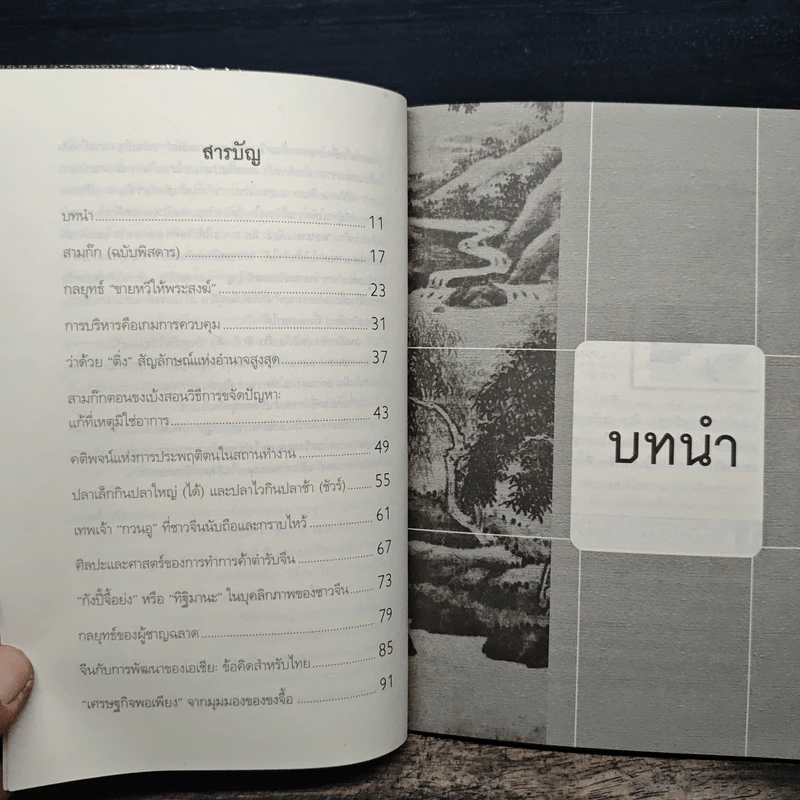 สารบัญ
บทนำ 11
สามก๊ก (ฉบับพิสดาร) 17
กลยุทธ์ "ขายหวีให้พระสงฆ์" 23
การบริหารคือเกมการควบคุม 31
ว่าด้วย "ติ่ง" สัญลักษณ์แห่งอำนาจสูงสุด 37
สามก๊กตอนขงเบ้งสอนวิธีการขจัดปัญหา:
แก้ที่เหตุมิใช่อาการ 43
คติพจน์แห่งการประพฤติตนในสถานทำงาน 49
ปลาเล็กกินปลาใหญ่ (ได้) และปลาไวกินปลาช้า (ชัวร์) 55
เทพเจ้า "กวนอู" ที่ชาวจีนนับถือและกราบไหว้ 61
ศิลปะและศาสตร์ของการทำการค้าตำรับจีน 67
"กังปี้จื้อย่ง" หรือ "ทิฐิมานะ" ในบุคลิกภาพของชาวจีน 73
กลยุทธ์ของผู้ชาญฉลาด 79
จีนกับการพัฒนาของเอเชีย: ข้อคิดสำหรับไทย 85
"เศรษฐกิจพอเพียง" จากมุมมองของขงจื้อ 91
บทนำ